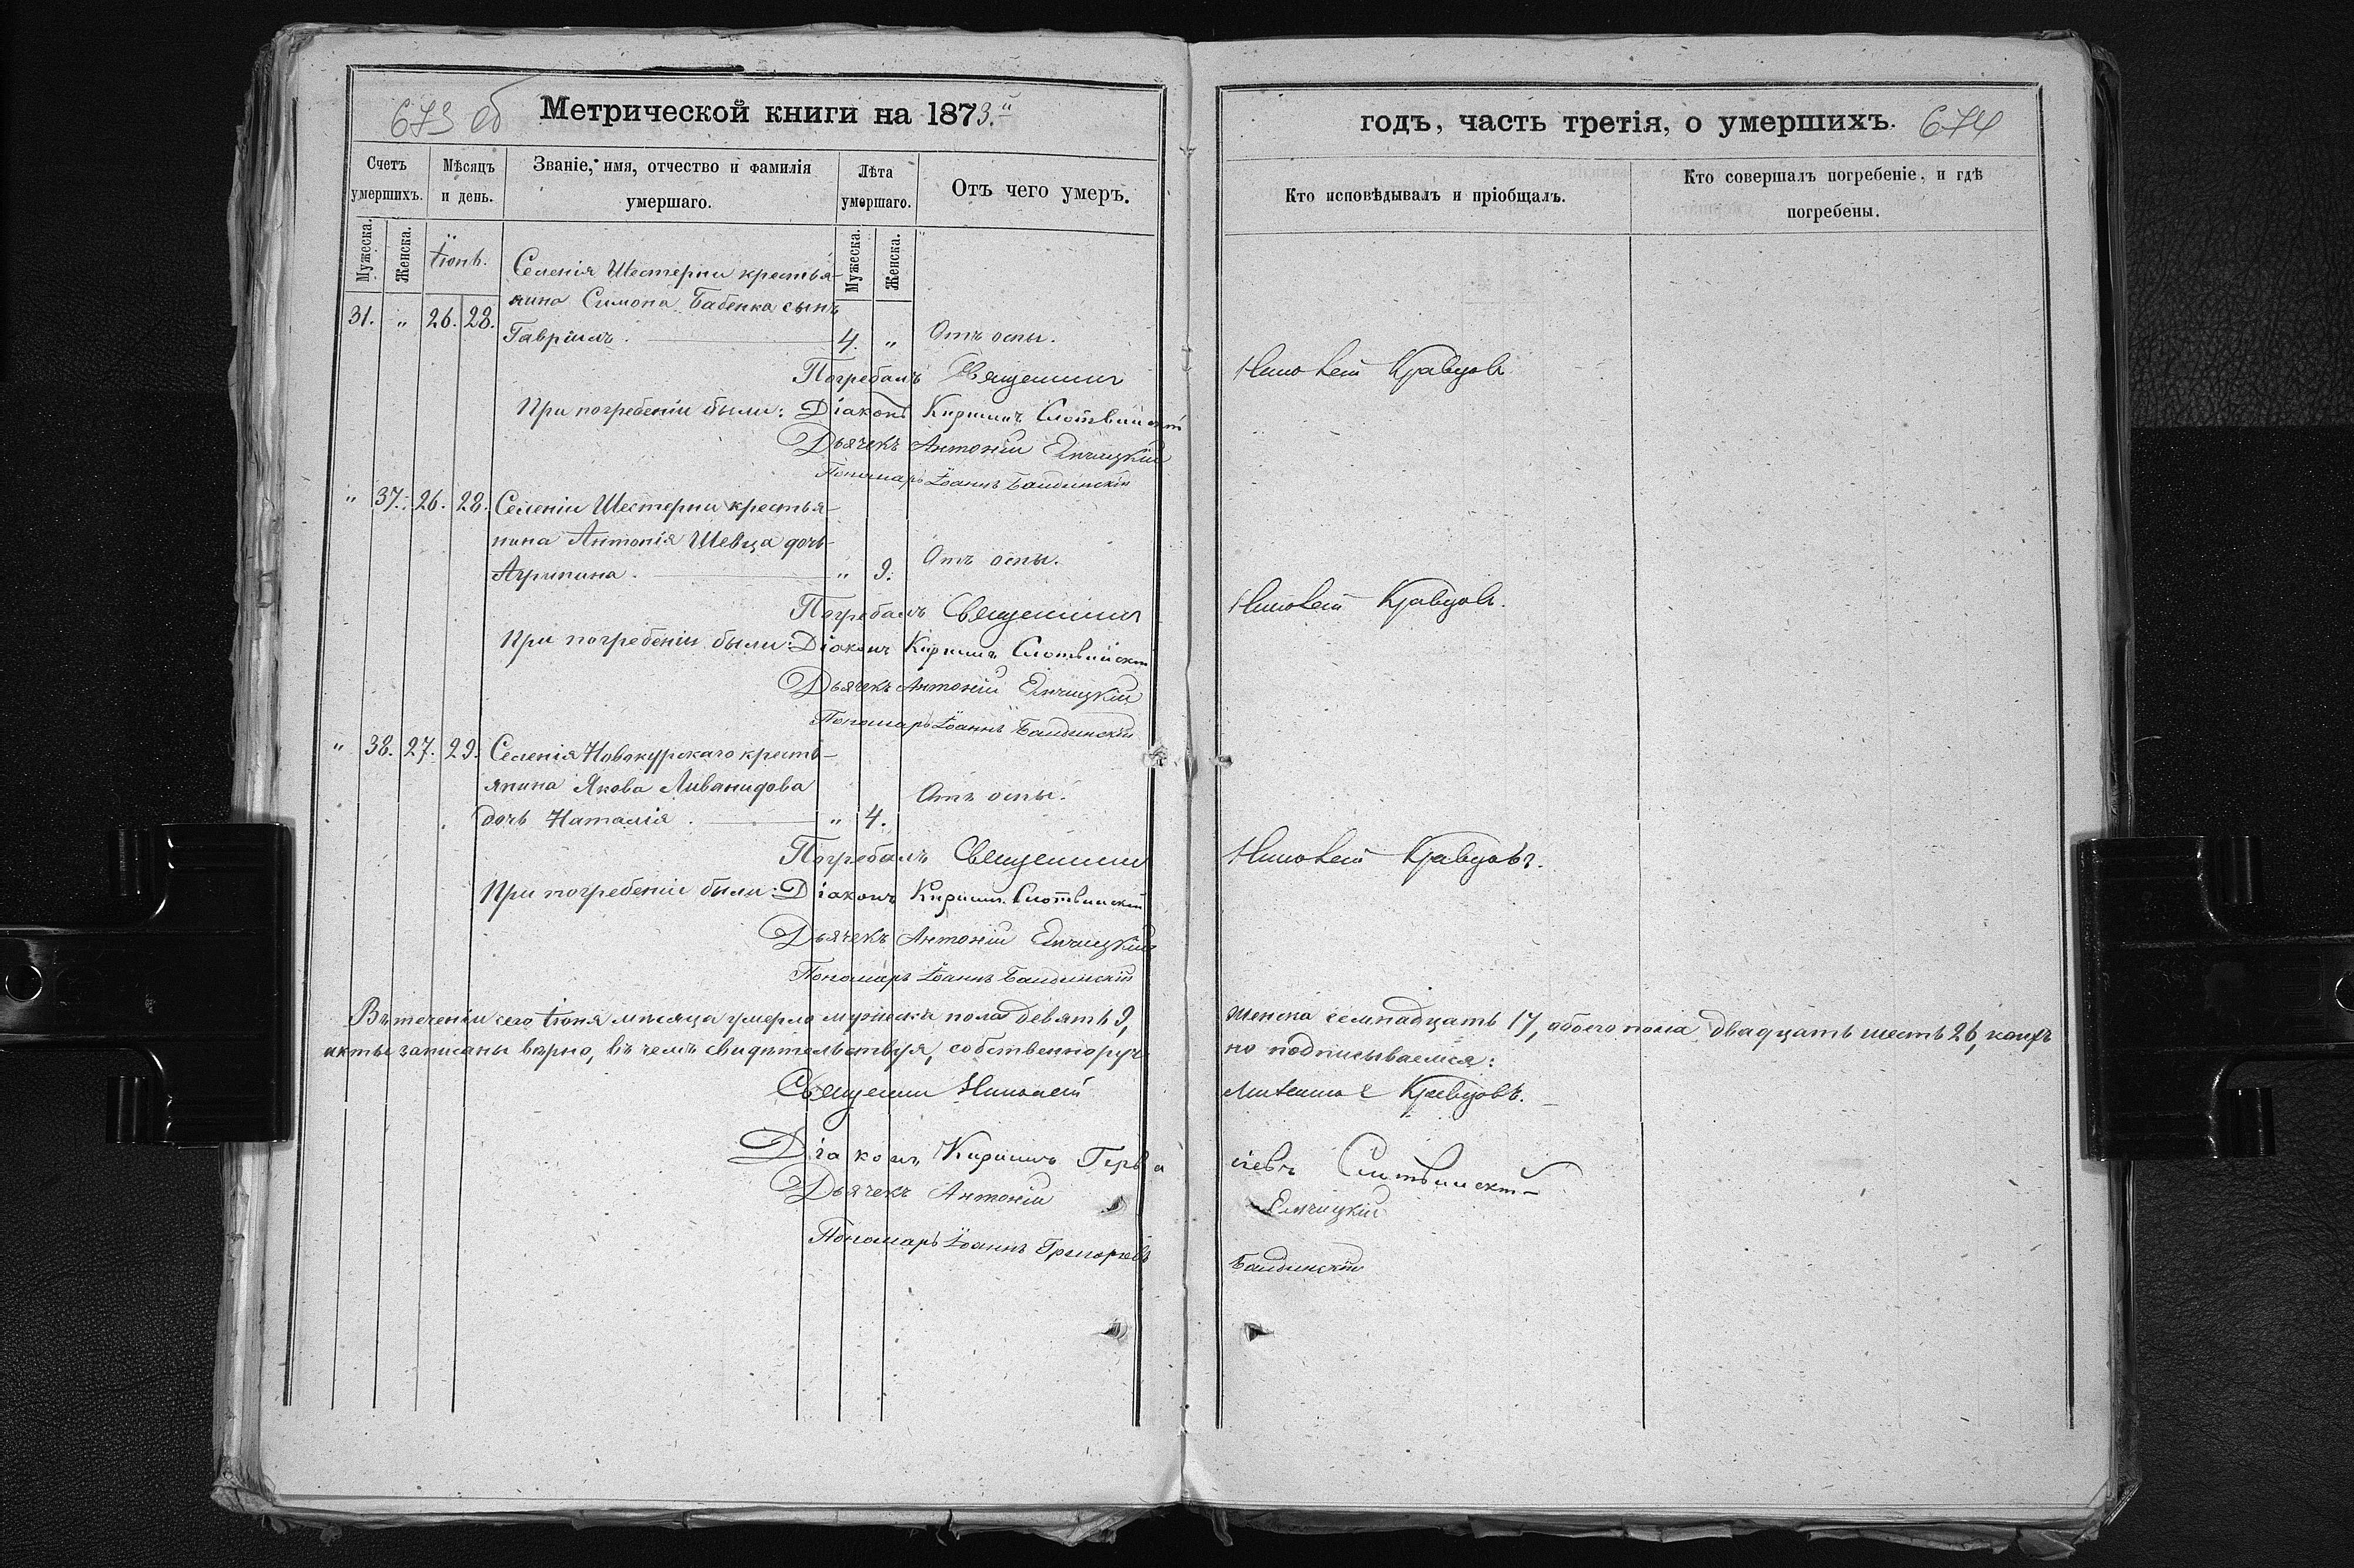 673 об
Метрической книги на 1873.й
Счетъ умершихъ.
Мѣсяцъ и день.
Званіе, имя, отчество и фамилія умершаго.
Лѣта умершаго.
Отъ чего умеръ.
Мужеска.
Женска.
Іюнь.
Мужеска.
Женска.
Селенія Шестерни крестья-
нина Симона Бабенка сынъ
31. " 26. 28. Гавріилъ. 4. " Отъ оспы.
Погребалъ Священник
При погребеніи были: Діаконъ Кириллъ Слотвинскій
Дьячекъ Антоній Елчицкій
Пономарь Іоаннъ Балдинскій
" 37. 26. 28. Селеніи Шестерни крестья-
нина Антонія Шевца дочь
Агрипина. " 9. Отъ оспы.
Погребалъ Священник
При погребеніи были: Діаконъ Кириллъ Слотвинскій
Дьячекъ Антоній Елчицкій
Пономарь Іоаннъ Балдинскій
" 38. 27. 29. Селенія Новокурскаго кресть-
янина Якова Ливанидова
дочь Наталія. " 4. Отъ оспы.
Погребалъ Священник
При погребеніи были: Діаконъ Кириллъ Слотвинскій
Дьячекъ Антоній Елчицкій
Пономарь Іоаннъ Балдинскій
Въ теченіи сего Іюня мѣсяца умерло мужеска пола девять 9,
акты записаны вѣрно, въ чемъ свидѣтельствуя, собственноруч-
Священник Николай
Діаконъ Кириллъ Герва
Дьячекъ Антоній
Пономарь Іоаннъ Григорьевъ
годъ, часть третія, о умершихъ.
674
Кто исповѣдывалъ и пріобщалъ.
Кто совершалъ погребеніе, и гдѣ погребены.
Николай Кравцовъ
Николай Кравцовъ.
Николай Кравцовъ.
женска семнадцать 17, обоего пола двадцать шесть 26, коихъ
но подписываемся:
Кравцовъ.
сіевъ Слотвинскій
Елчицкій
Балдинскій